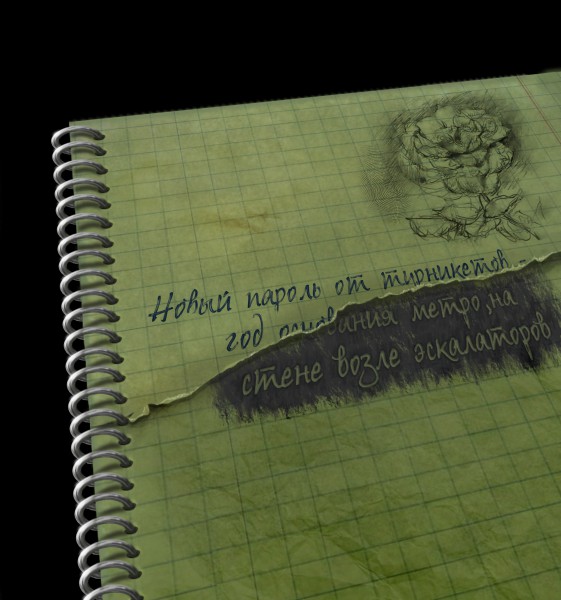 Новый пароль от турникетов -
год основания метро, на
стене возле эскалаторов